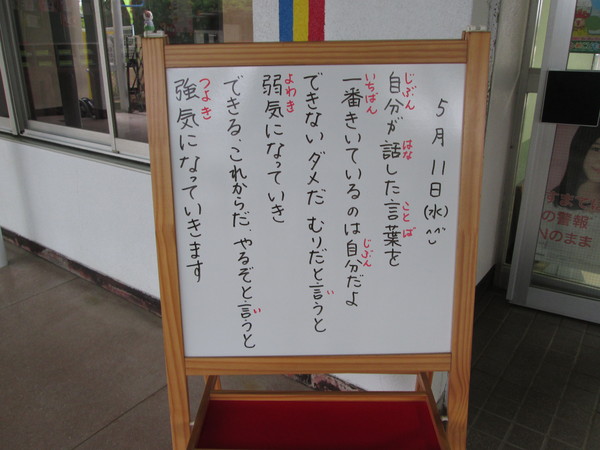 5月11日(水)^^
自分が話した言葉を
じぶん はな ことば
一番きいているのは自分だよ
いちばん じぶん
できないダメだ むりだと言うと
い
弱気になっていき
よわき
できる、これからだ、やるぞと言うと
い
強気になっていきます
つよき
の警報
Nのまま